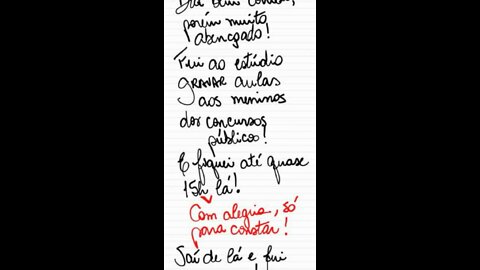 Dia bem corrido,
porém muito
abençoado!
Fui ao estúdio
GRAVAR aulas
aos meninos
dos concursos
públicos!
E fiquei até quase
15h lá!
Com alegria, só
para constar!
Saí de lá e fui